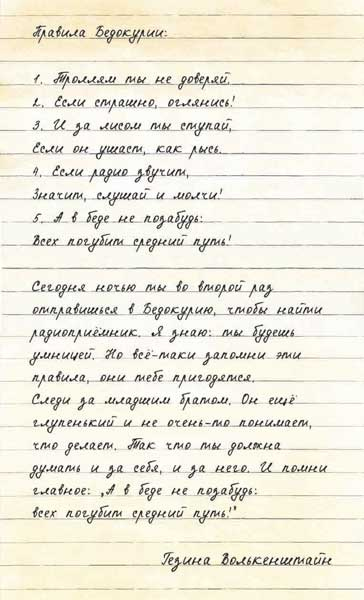 Правила Бедокурии:
1. Троллям ты не доверяй.
2. Если страшно, оглянись!
3. И за лисом ты ступай,
Если он ушаст, как рысь.
4. Если радио звучит,
Значит, слушай и молчи!
5. А в беде не позабудь:
Всех погубит средний путь!
Сегодня ночью ты во второй раз
отправишься в Бедокурию, чтобы найти
радиоприёмник. Я знаю: ты будешь
умницей. Но всё-таки запомни эти
правила, они тебе пригодятся.
Следи за младшим братом. Он ещё
глупенький и не очень-то понимает,
что делает. Так что ты должна
думать и за себя, и за него. И помни
главное: „А в беде не позабудь:
всех погубит средний путь!"
Гезина Волькенштайн